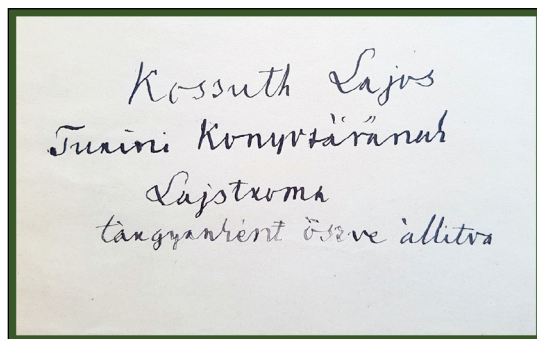 Kossuth Lajos
Turini Könyvtárának
Lajstroma
tárgyanként öszve állitva